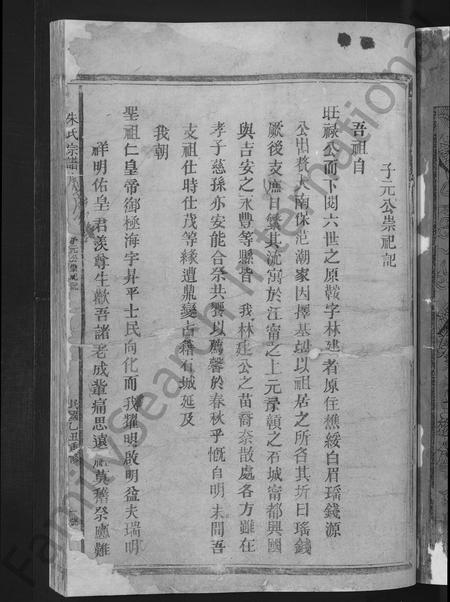 子元公崇祀記
吾祖自
旺祿公而下閱六世之原 字林建者原住樵綏白眉瑤錢源
公出 大南保范潮家因擇基 以祖居之所名其圻曰瑤錢
厥後支庶日繁其流寓於江甯之上元 贛之石城甯都興國
與吉安之永豐等縣皆 我 林建公之苗裔奈散處各方雖在
孝子慈孫亦安能合祭共饗以薦馨於春秋乎慨自明末間吾
支祖仕時仕茂等緣遭鼎變古籍石城延及
我朝
聖祖仁皇帝御極海宇昇平士民向化而 我耀明啟明益夫瑞明
祥明佑皇君羨尊生歡吾諸老成輩痛思遠祖莫舊祭應難
朱氏宗譜
子元公崇祀記
民國乙丑
FamilySearch International